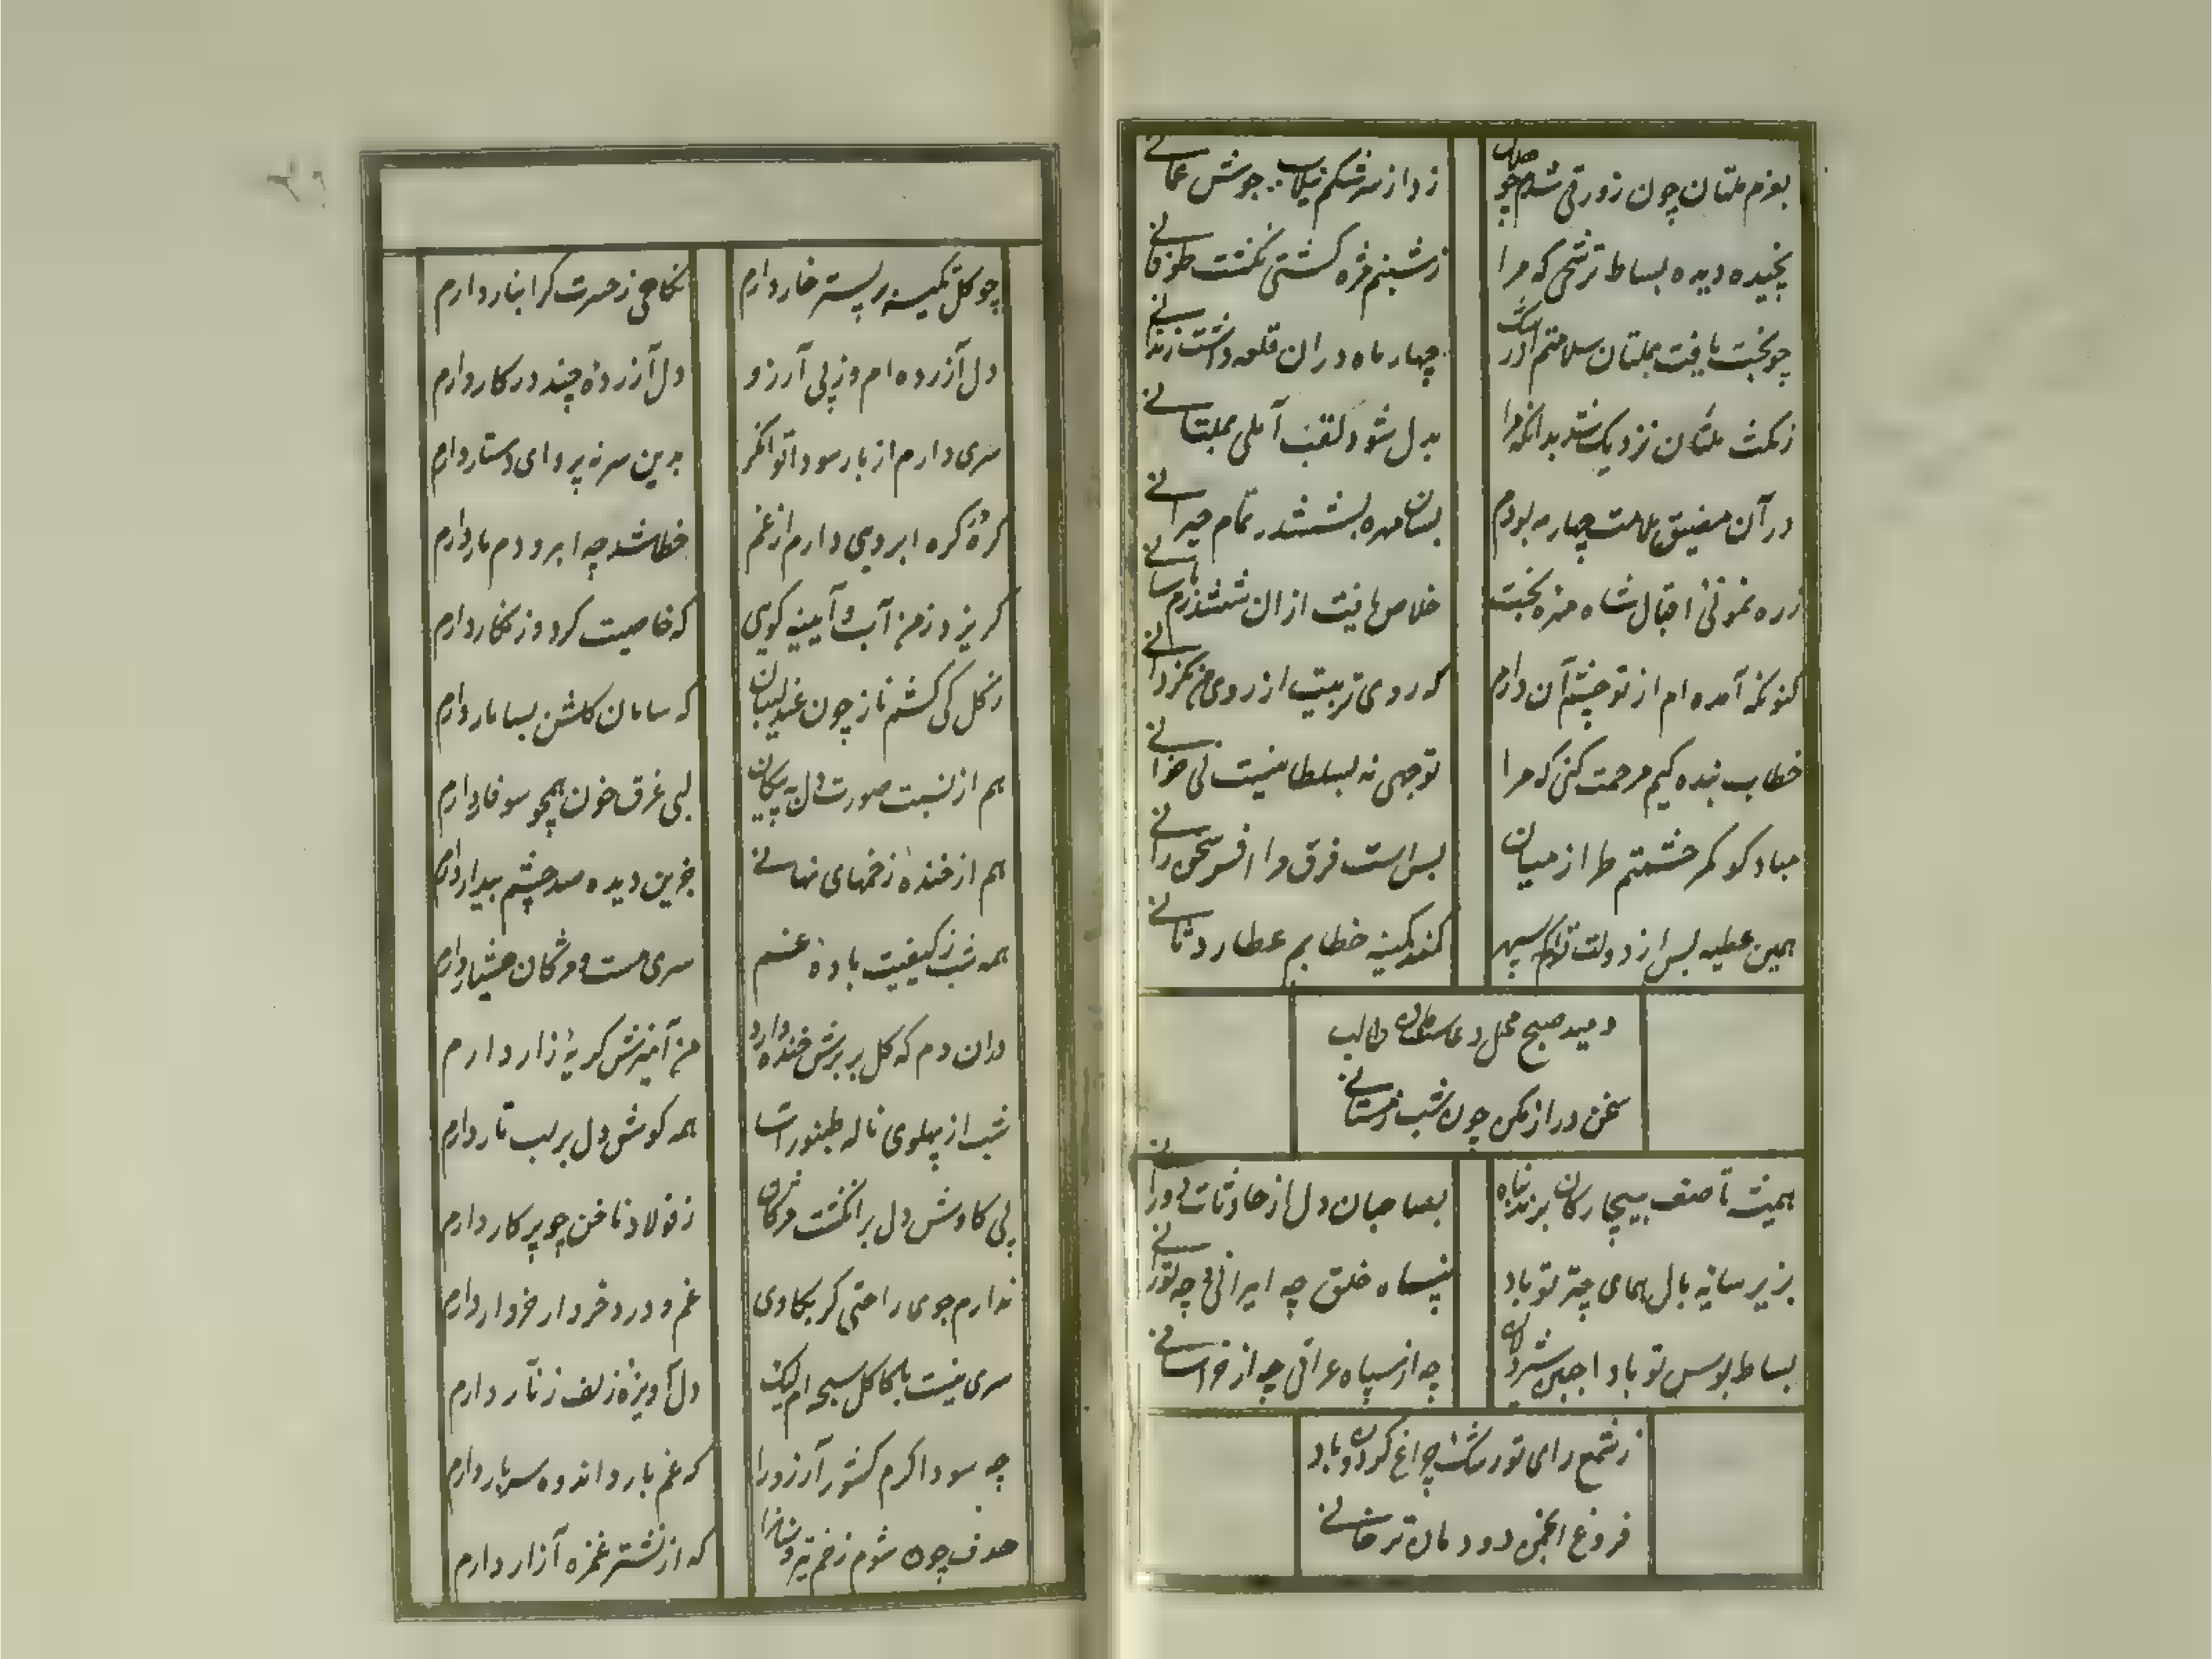 بعزم ملتان چون زورقی شدم چو هلال
زد از سرشکم جوش عمانے
بچیده دیده بساط ترشحی که مرا
ز شبنم مژه کشتی نکشت طوفانے
چو بخت یافت بملتان سلامتم
چهار ماه در ان قلعه داشت زندانے
ز مکث ملتان نزدیک شد بدانکه مرا
بدل شود لقب آملی بملتانے
در آن مضیق ملامت چهار مه بودم
بسان مهره بششدر تمام حیرانے
ز ره نمونئ اقبال شاه مهره بخت
خلاص یافت از ان ششدرم
کنونکه آمده ام از تو چشم آن دارم
که روی تربیت از روی من نکردانے
خطاب بنده کیم مرحمت کنی که مرا
توجهی نه بسلطانیست نی خانے
مباد کو کمر حشمتم طراز میان
بس است فرق مرا افسر سخن رانے
همین عطیه بس از دولت تو کم سپهر
کند کمینه خطابم عطارد ثانے
دمید صبح محل دعاست هان طالب
سخن دراز مکن چون شب زمستانے
همیشه تا صف بیچارکان برند پناه
بصاحبان دل از حادثات دورانے
بزیر سایه بال همای چتر تو باد
پناه خلق چه ایرانی و چه تورانے
بساط بوس تو بادا جبین شیردلان
چه از سپاه عراقی چه از خراسانے
ز شمع رای تو روشن چراغ کردون باد
فروغ انجمن دودمان ترخانے
چو کل تکیه بر بستر خار دارم
نکاهی ز حسرت کرانبار دارم
دل آزرده ام وز پی آرزو
دل آزردهٔ چند در کار دارم
سری دارم از بار سودا توانکر
بدین سر نه پروای دستار دارم
کره در کره ابروی دارم از غم
خطا شد چه ابرو دم مار دارم
کریزد ز من آب و آیینه کویی
که خاصیت کرد و زنکار دارم
ز کل کی کشم ناز چون عندلیبان
که سامان کلشن بسا مار دارم
هم از نسبت صورت دل به پیکان
لبی غرق خون همچو سوفار دارم
هم از خندهٔ زخمهای نهانے
جزین دیده صد چشم بیدار دارم
همه شب ز کیفیت بادهٔ غم
سری مست و مژکان هشیار دارم
دران دم که کل بر برش خنده دارد
من آمیزش کریهٔ زار دارم
شب از پهلوی ناله طنبور آسا
همه کوش دل بر لب تار دارم
پی کاوش دل بر انکشت مژکان
ز فولاد ناخن چو پرکار دارم
ندارم جوی راحتی کر بکاوی
غم و درد خروار خروار دارم
سری نیست با کاکل سبحه ام لیک
دل آویزهٔ زلف زنار دارم
چه سودا کرم کشور آرزو را
که غم بار و اندوه سربار دارم
هدف چون شوم زخم تیر
که از نشتر غمزه آزار دارم